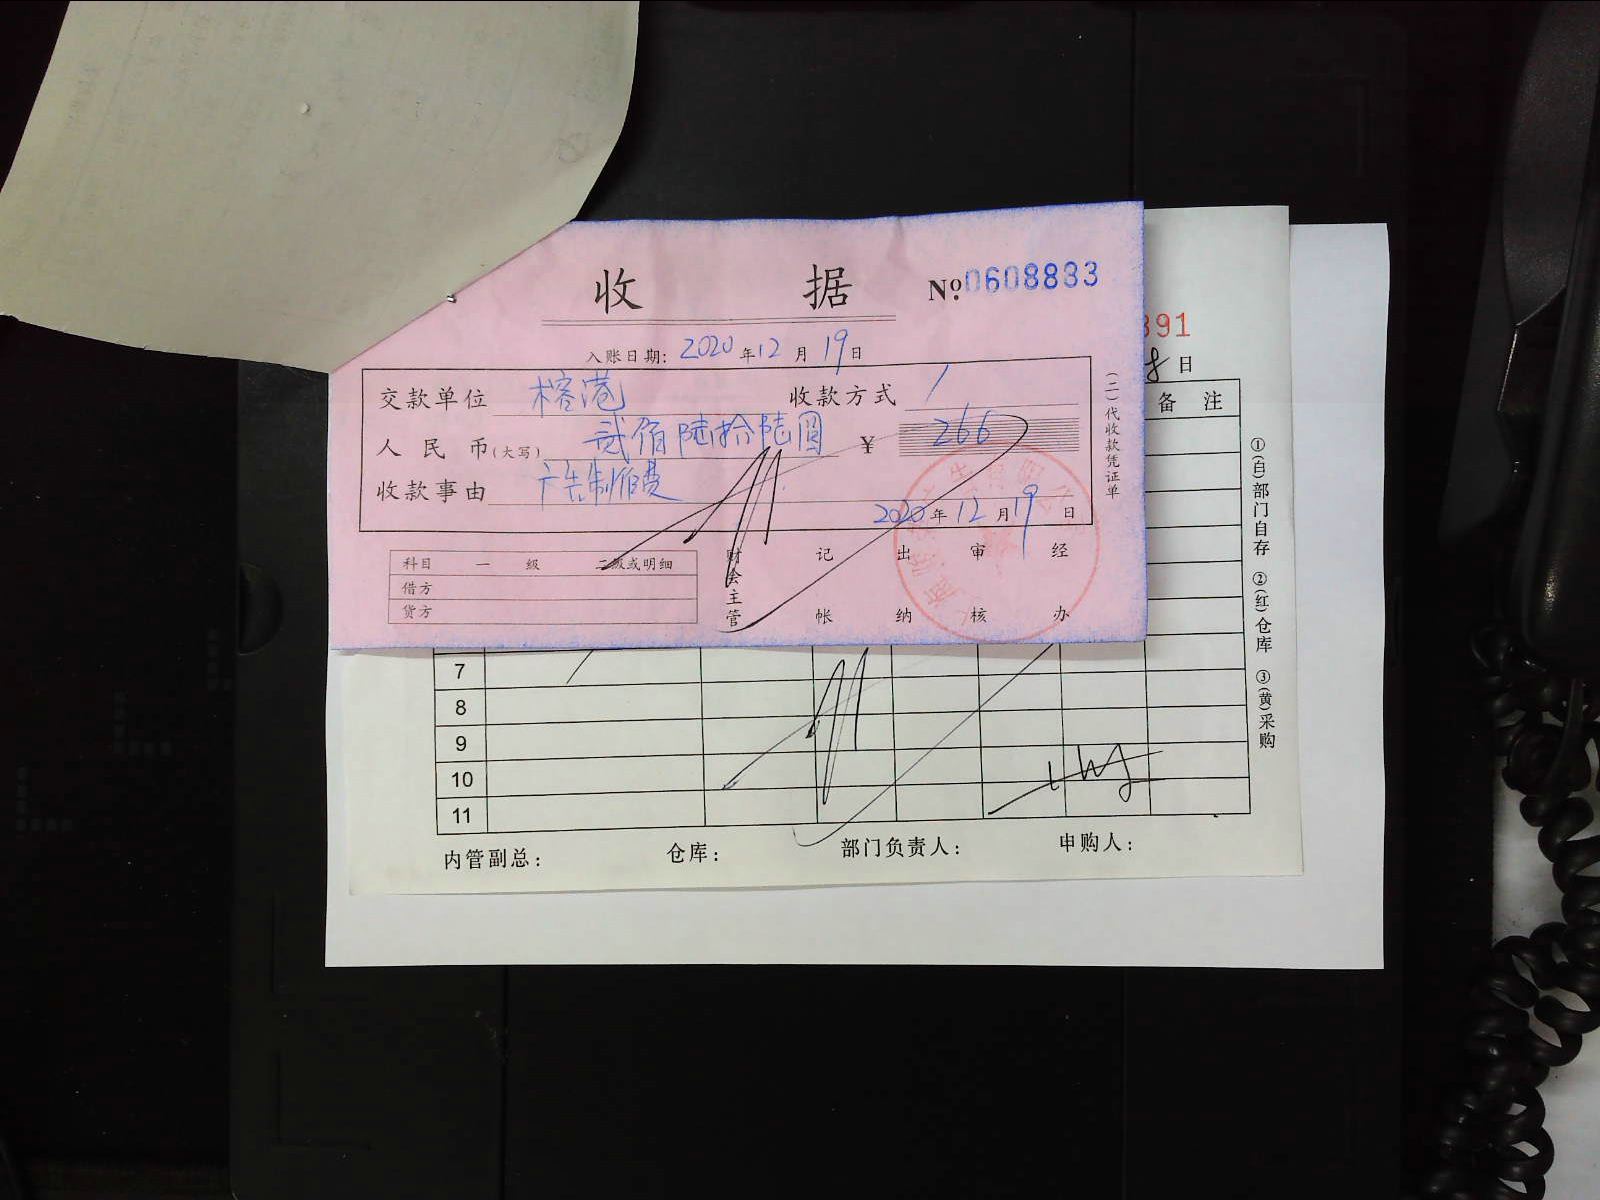 收 据 Nº 0608833
入账日期: 2020 年 12 月 19 日
交款单位 榕港 收款方式 /
人民币(大写) 贰佰陆拾陆圆 ¥ 266
收款事由 广告制作费
2020 年 12 月 19 日
科目 一级 二级或明细
借方
贷方
财会主管 记帐 出纳 审核 经办
(二)代收款凭证单
391
8 日
备 注
7
8
9
10
11
内管副总: 仓库: 部门负责人: 申购人:
①(白)部门自存 ②(红)仓库 ③(黄)采购